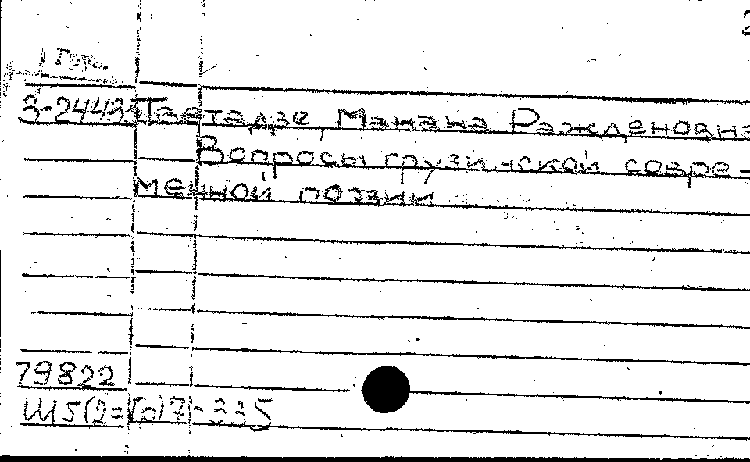 2
1
З-24435 Гаетадзе, Манана Ражденовна
Вопросы грузинской совре-
менной поэзии
79822
Ш5(2=Го)7-335